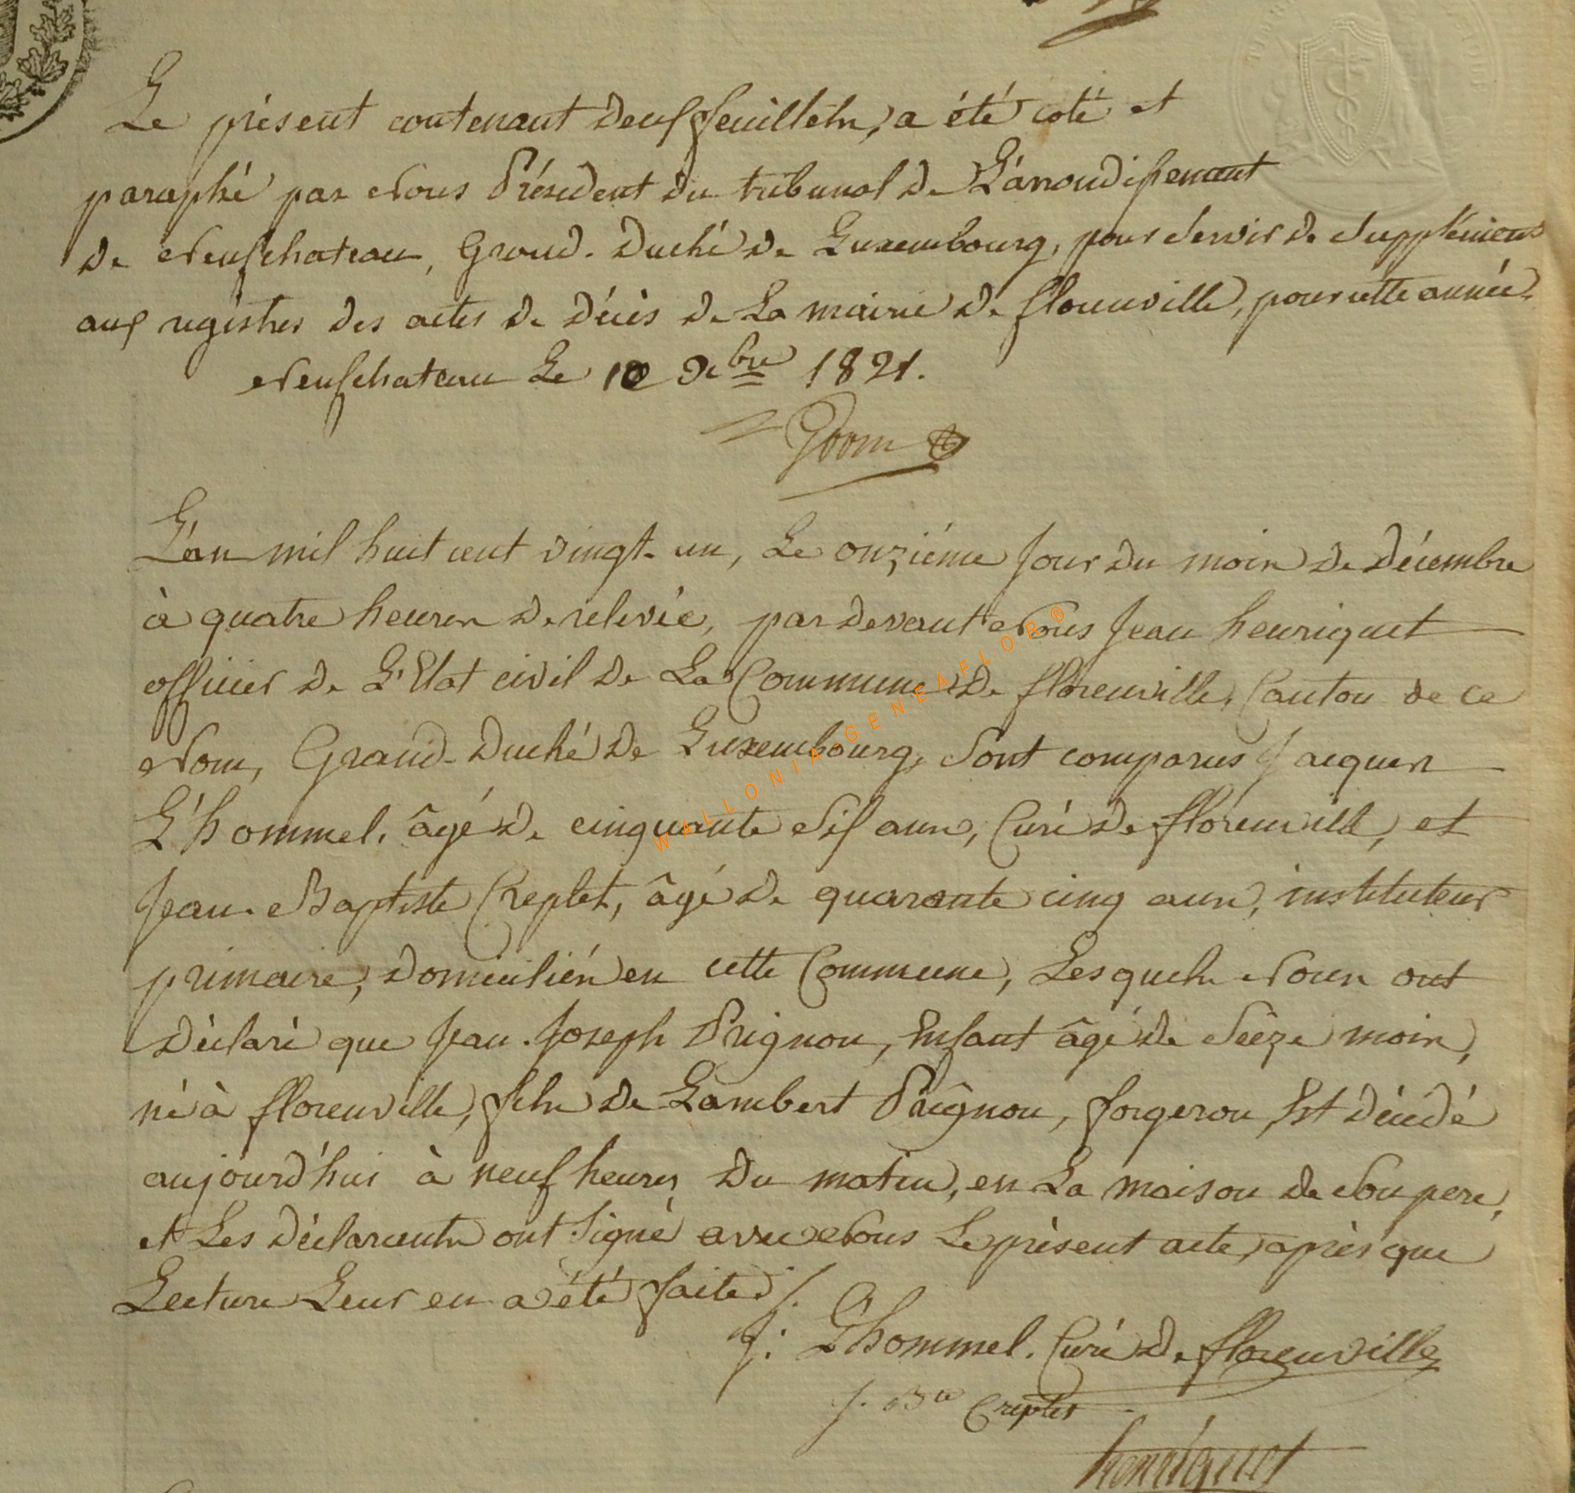 Le présent contenant deux feuillets, a été coté et
paraphé par Nous Président du tribunal de L'arrondissement
de Neufchateau, Grand-Duché de Luxembourg, pour servir de Supplément
aux régistres des actes de décès de La mairie de florenville, pour cette année.
Neufchateau Le 10 Xbre 1821.
L'an mil huit cent vingt-un, Le onzième Jour du mois de décembre
à quatre heures de relevée, pardevant Nous Jean henriquet
officier de L'Etat civil de La Commune de florenville, Canton de ce
Nom, Grand-Duché de Luxembourg, Sont comparus Jacques
L'hommel, âgé de cinquante Six ans, Curé de florenville, et
Jean-Baptiste Creplet, âgé de quarante cinq ans, instituteur
primaire, domiciliés en cette Commune, Lesquels Nous ont
Déclaré que Jean-Joseph Prignon, Enfant âgé de Sèeze mois,
né à florenville, fils de Lambert Prignon, forgeron, Est décédé
aujourd'hui à neuf heures du matin, en La maison de Son pere,
et Les Déclarants ont Signé avec Nous Le présent acte, après que
Lecture Leur en a été faite ./.
J: L'hommel. Curé de florenville
J. Bte Creplet
henriquet
WALLONIA-GENEAFLO.ORG